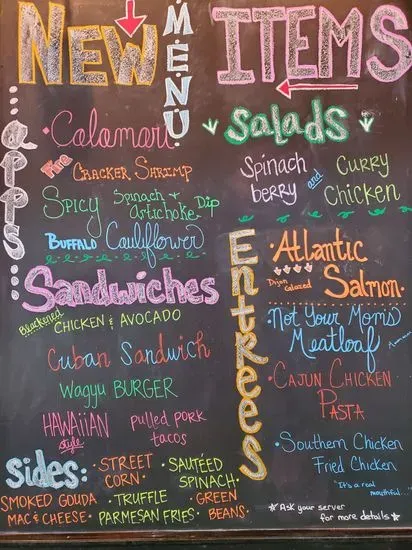 New MENU ITEMS
apps
• Calamari
Fire CRACKER SHRIMP
SPICY Spinach + artichoke Dip
BUFFALO Cauliflower
Sandwiches
Blackened CHICKEN & AVOCADO
Cuban Sandwich
Wagyu BURGER
HAWAiiAN style pulled pork tacos
Sides:
STREET CORN •
• SAUTÉED SPINACH •
SMOKED GOUDA MAC & CHEESE •
• TRUFFLE PARMESAN FRIES •
GREEN BEANS •
Salads
Spinach berry and Curry Chicken
Entrees
• Atlantic Salmon •
Dijon Glazed
• Not Your Mom's Meatloaf
• CAJUN CHICKEN PASTA
• Southern Chicken Fried Chicken
"It's a real mouthful...
* Ask your server for more details *